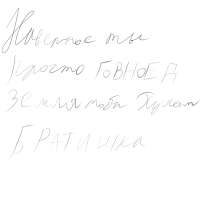 Наверное ты
просто говноед
Земля тебе Пухом
БРАТИШКА